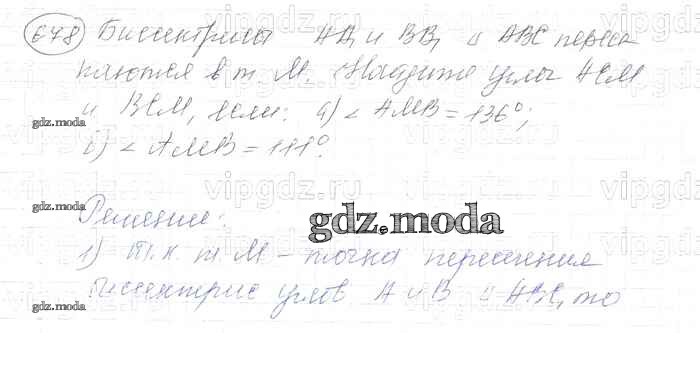 678 Биссектрисы AA₁ и BB₁ △ ABC пересе
каются в т. M. Найдите углы ACM
и BCM, если: а) ∠ AMB = 136°;
б) ∠ AMB = 111°.
Решение:
1) Т.к. т. M - точка пересечения
биссектрис углов A и B △ ABC, то
gdz.moda
gdz.moda
gdz.moda
gdz.moda
vipgdz.ru